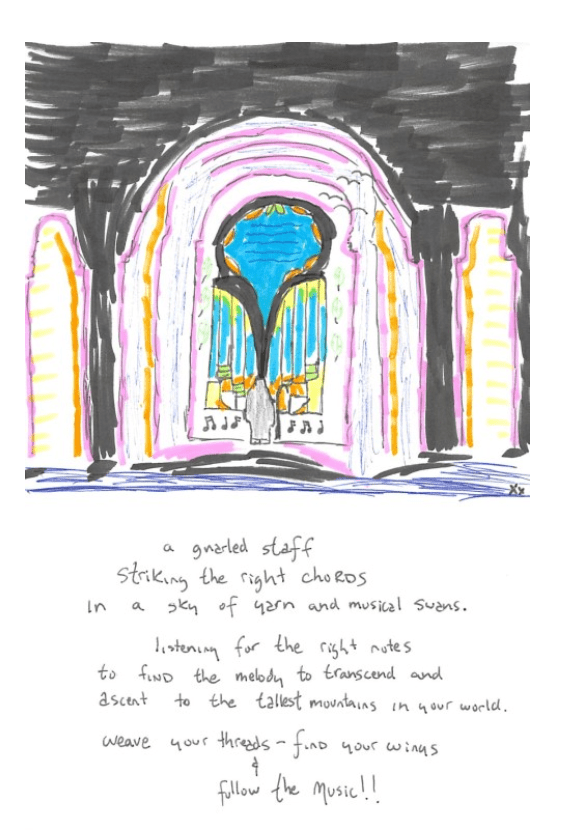 Xx
a gnarled staff
striking the right chords
in a sky of yarn and musical swans.
listening for the right notes
to find the melody to transcend and
ascent to the tallest mountains in your world.
weave your threads - find your wings
&
follow the music!!